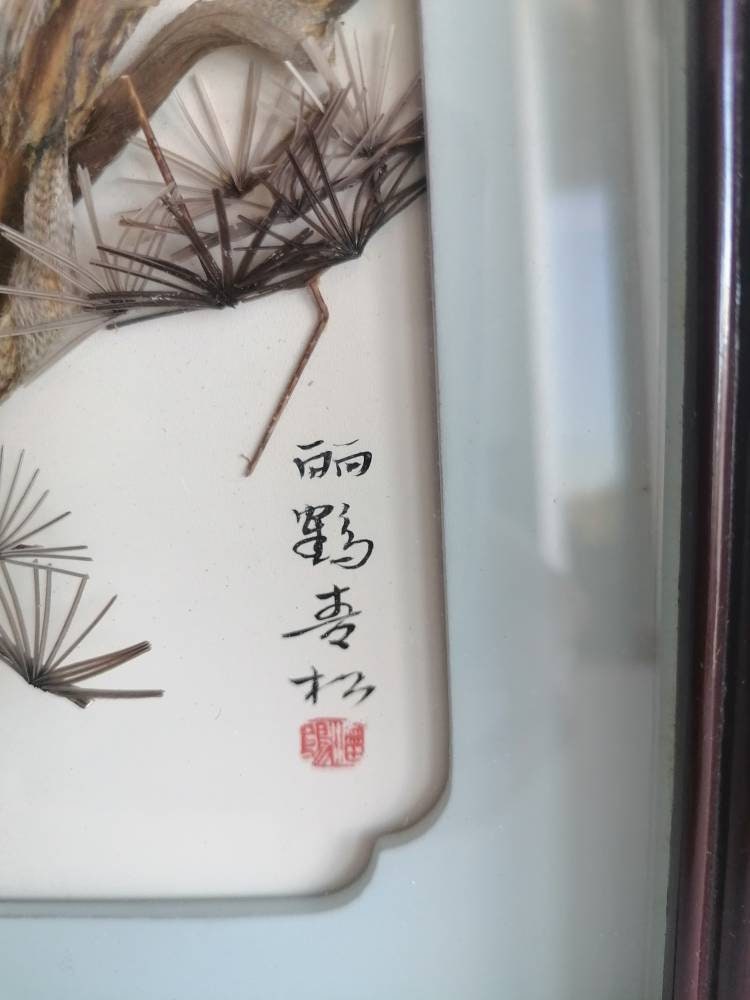 丽鹤青松